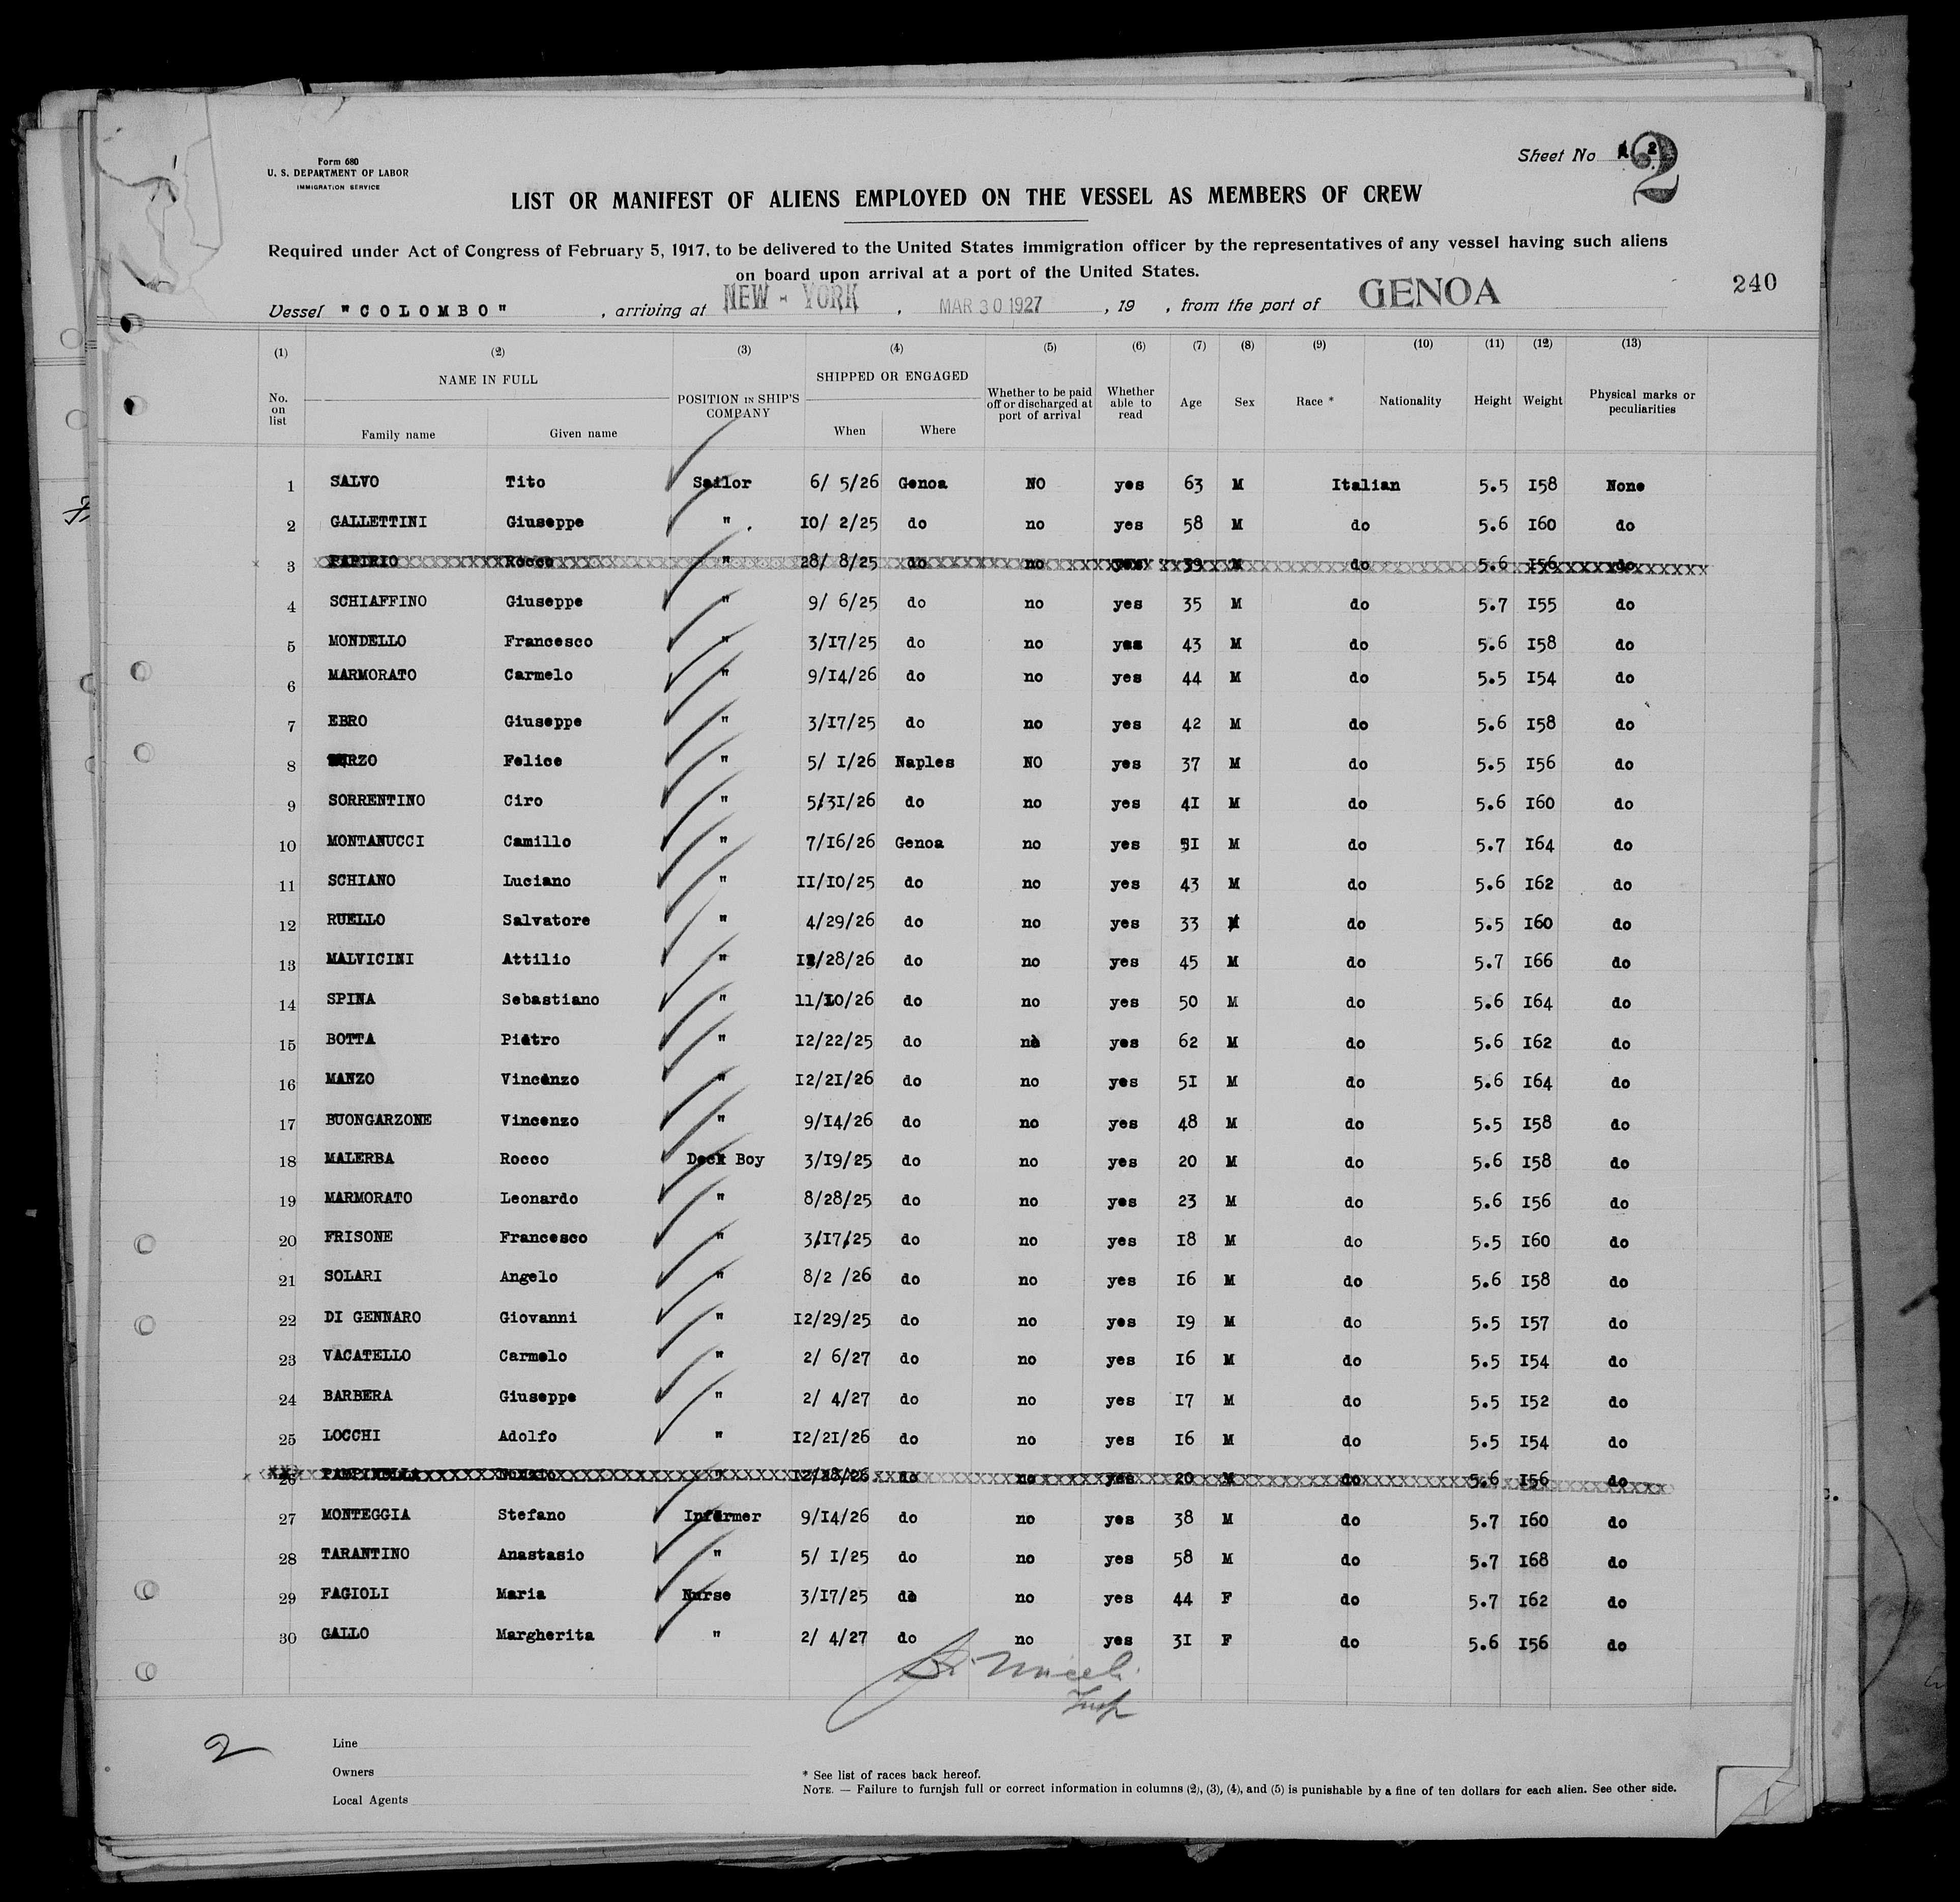 Form 680
U. S. DEPARTMENT OF LABOR
IMMIGRATION SERVICE
Sheet No 2
2
LIST OR MANIFEST OF ALIENS EMPLOYED ON THE VESSEL AS MEMBERS OF CREW
Required under Act of Congress of February 5, 1917, to be delivered to the United States immigration officer by the representatives of any vessel having such aliens
on board upon arrival at a port of the United States.
240
Vessel "COLOMBO" , arriving at NEW-YORK , MAR 30 1927 , 19 , from the port of GENOA
(1) (2) (3) (4) (5) (6) (7) (8) (9) (10) (11) (12) (13)
No. on list NAME IN FULL Family name Given name POSITION IN SHIP'S COMPANY SHIPPED OR ENGAGED When Where Whether to be paid off or discharged at port of arrival Whether able to read Age Sex Race * Nationality Height Weight Physical marks or peculiarities
1 SALVO Tito Sailor 6/ 5/26 Genoa NO yes 63 M Italian 5.5 158 None
2 GALLETTINI Giuseppe " . 10/ 2/25 do no yes 58 M do 5.6 160 do
3 Rocco " 28/ 8/25 do no yes 39 M do 5.6 156 do
4 SCHIAFFINO Giuseppe " 9/ 6/25 do no yes 35 M do 5.7 155 do
5 MONDELLO Francesco " 3/17/25 do no yes 43 M do 5.6 158 do
6 MARMORATO Carmelo " 9/14/26 do no yes 44 M do 5.5 154 do
7 EBRO Giuseppe " 3/17/25 do no yes 42 M do 5.6 158 do
8 Felice " 5/ 1/26 Naples NO yes 37 M do 5.5 156 do
9 SORRENTINO Ciro " 5/31/26 do no yes 41 M do 5.6 160 do
10 MONTANUCCI Camillo " 7/16/26 Genoa no yes M do 5.7 164 do
11 SCHIANO Luciano " 11/10/25 do no yes 43 M do 5.6 162 do
12 RUELLO Salvatore " 4/29/26 do no yes 33 M do 5.5 160 do
13 MALVICINI Attilio " do no yes 45 M do 5.7 166 do
14 SPINA Sebastiano " 11/10/26 do no yes 50 M do 5.6 164 do
15 BOTTA Pietro " 12/22/25 do no yes 62 M do 5.6 162 do
16 MANZO Vincenzo " 12/21/26 do no yes 51 M do 5.6 164 do
17 BUONGARZONE Vincenzo " 9/14/26 do no yes 48 M do 5.5 158 do
18 MALERBA Rocco Deck Boy 3/19/25 do no yes 20 M do 5.6 158 do
19 MARMORATO Leonardo " 8/28/25 do no yes 23 M do 5.6 156 do
20 FRISONE Francesco " 3/17/25 do no yes 18 M do 5.5 160 do
21 SOLARI Angelo " 8/2 /26 do no yes 16 M do 5.6 158 do
22 DI GENNARO Giovanni " 12/29/25 do no yes 19 M do 5.5 157 do
23 VACATELLO Carmelo " 2/ 6/27 do no yes 16 M do 5.5 154 do
24 BARBERA Giuseppe " 2/ 4/27 do no yes 17 M do 5.5 152 do
25 LOCCHI Adolfo " 12/21/26 do no yes 16 M do 5.5 154 do
26 " 12/28/26 do no yes 20 M do 5.6 156 do
27 MONTEGGIA Stefano Infermer 9/14/26 do no yes 38 M do 5.7 160 do
28 TARANTINO Anastasio " 5/ 1/25 do no yes 58 M do 5.7 168 do
29 FAGIOLI Maria Nurse 3/17/25 do no yes 44 F do 5.7 162 do
30 GALLO Margherita " 2/ 4/27 do no yes 31 F do 5.6 156 do
Insp
2
Line
Owners
Local Agents
* See list of races back hereof.
NOTE. — Failure to furnish full or correct information in columns (2), (3), (4), and (5) is punishable by a fine of ten dollars for each alien. See other side.